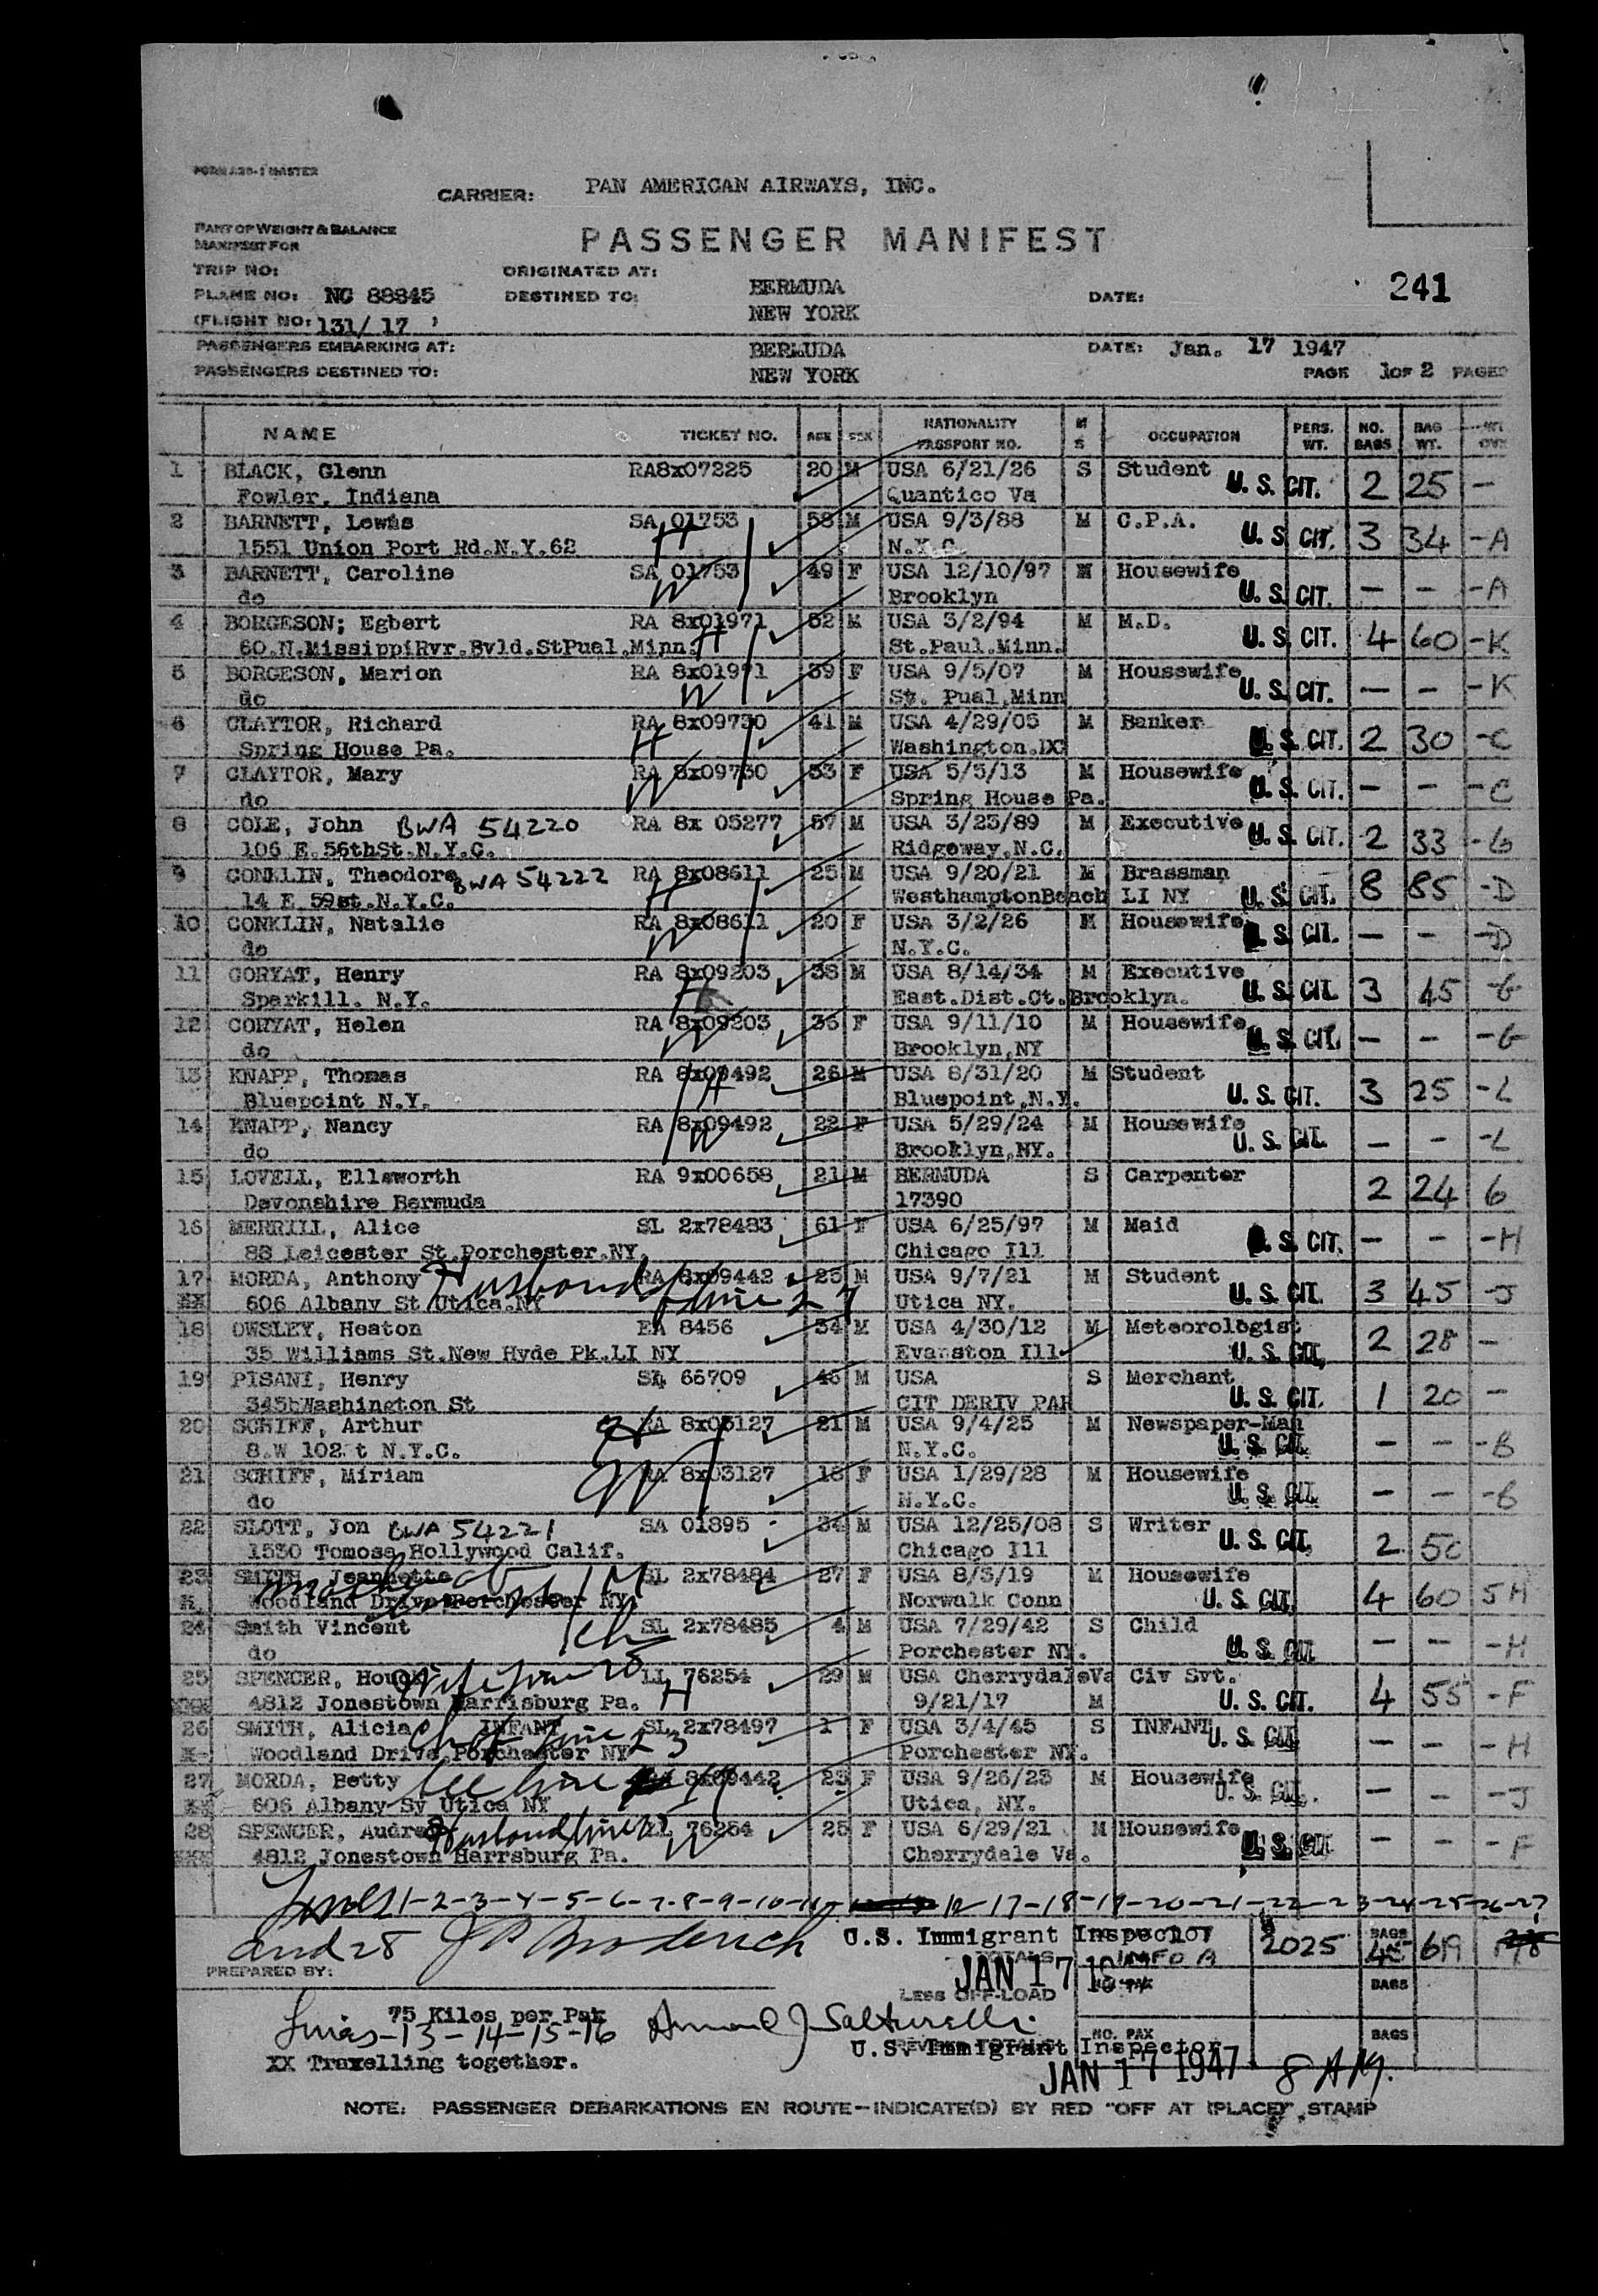 FORM A30-1 MASTER
CARRIER: PAN AMERICAN AIRWAYS, INC.
PART OF WEIGHT & BALANCE
MANIFEST FOR
PASSENGER MANIFEST
TRIP NO: ORIGINATED AT: BERMUDA
PLANE NO: NC 88845 DESTINED TO: NEW YORK DATE: 241
(FLIGHT NO: 131/ 17 )
PASSENGERS EMBARKING AT: BERMUDA DATE: Jan. 17 1947
PASSENGERS DESTINED TO: NEW YORK PAGE 1 OF 2 PAGES
NAME TICKET NO. AGE SEX NATIONALITY PASSPORT NO. M S OCCUPATION PERS. WT. NO. BAGS BAG WT.
1 BLACK, Glenn RA8x07225 20 M USA 6/21/26 S Student U. S. CIT. 2 25 -
Fowler, Indiana Quantico Va
2 BARNETT, Lewis SA 01753 H 58 M USA 9/3/88 M C.P.A. U. S. CIT. 3 34 -A
1551 Union Port Rd.N.Y.62 N.Y.C.
3 BARNETT, Caroline SA 01753 W 49 F USA 12/10/97 M Housewife U. S. CIT. - - -A
do Brooklyn
4 BORGESON; Egbert RA 8x01971 H 52 M USA 3/2/94 M M.D. U. S. CIT. 4 60 -K
60.N.MissippiRvr.Bvld.StPual.Minn. St.Paul.Minn.
5 BORGESON, Marion RA 8x01971 W 39 F USA 9/5/07 M Housewife U. S. CIT. - - -K
do St. Pual,Minn
6 CLAYTOR, Richard RA 8x09730 H 41 M USA 4/29/05 M Banker U. S. CIT. 2 30 -C
Spring House Pa. Washington.DC
7 CLAYTOR, Mary RA 8x09730 W 33 F USA 5/5/13 M Housewife U. S. CIT. - - -C
do Spring House Pa.
8 COLE, John BWA 54220 RA 8x 05277 57 M USA 3/23/89 M Executive U. S. CIT. 2 33 -G
106 E.56thSt.N.Y.C. Ridgeway.N.C.
9 CONKLIN, Theodore BWA 54222 RA 8x08611 H 25 M USA 9/20/21 M Brassman U. S. CIT. 8 85 -D
14 E 59st.N.Y.C. WesthamptonBeach LI NY
10 CONKLIN, Natalie RA 8x08611 W 20 F USA 3/2/26 M Housewife U. S. CIT. - - -D
do N.Y.C.
11 CORYAT, Henry RA 8x09203 H 38 M USA 8/14/34 M Executive U. S. CIT. 3 45 -G
Sparkill. N.Y. East.Dist.Ct.Brooklyn.
12 CORYAT, Helen RA 8x09203 W 36 F USA 9/11/10 M Housewife U. S. CIT. - - -G
do Brooklyn,NY
13 KNAPP, Thomas RA 8x09492 H 26 M USA 8/31/20 M Student U. S. CIT. 3 25 -L
Bluepoint N.Y. Bluepoint,N.Y.
14 KNAPP, Nancy RA 8x09492 W 22 F USA 5/29/24 M Housewife U. S. CIT. - - -L
do Brooklyn,NY.
15 LOVELL, Ellsworth RA 9x00658 21 M BERMUDA S Carpenter 2 24 6
Devonshire Bermuda 17390
16 MERRILL, Alice SL 2x78483 61 F USA 6/25/97 M Maid U. S. CIT. - - -H
88 Leicester St.Porchester.NY. Chicago Ill
17 MORDA, Anthony Husband RA 8x09442 25 M USA 9/7/21 M Student U. S. CIT. 3 45 -J
XX 606 Albany St Utica.NY line 27 Utica NY.
18 OWSLEY, Heaton EA 8456 34 M USA 4/30/12 M Meteorologist U. S. CIT. 2 28 -
35 Williams St.New Hyde Pk.LI NY Evanston Ill
19 PISANI, Henry SL 66709 46 M USA S Merchant U. S. CIT. 1 20 -
345hWashington St CIT DERIV PAR
20 SCHIFF, Arthur H RA 8x03127 21 M USA 9/4/25 M Newspaper-Man U. S. CIT. - - -B
8.W 102.t N.Y.C. N.Y.C.
21 SCHIFF, Miriam W RA 8x03127 18 F USA 1/29/28 M Housewife U. S. CIT. - - -B
do N.Y.C.
22 SLOTT, Jon BWA 54221 SA 01895 34 M USA 12/25/08 S Writer U. S. CIT. 2 50
1530 Tomosa Hollywood Calif. Chicago Ill
23 SMITH, Jeannette M SL 2x78484 27 F USA 8/3/19 M Housewife U. S. CIT. 4 60 5 H
X. Woodland Drive Porchester NY. Norwalk Conn
24 Smith Vincent ch SL 2x78485 4 M USA 7/29/42 S Child U. S. CIT. - - -H
do Porchester NY.
25 SPENCER, Wife line 28 LL 76254 H 29 M USA CherrydaleVa Civ Svt. U. S. CIT. 4 55 -F
XXX 4812 Jonestown Harrisburg Pa. 9/21/17 M
26 SMITH, Alicia INFANT SL 2x78497 1 F USA 3/4/45 S INFANT U. S. CIT. - - -H
X- Woodland Drive,Porchester NY line 23 Porchester NY.
27 MORDA, Betty See line 17 8x09442 23 F USA 9/26/23 M Housewife U. S. CIT. - - -J
XX 606 Albany Sv Utica NY Utica, NY.
28 SPENCER, Audrey Husband line 25 LL 76254 W 25 F USA 6/29/21 M Housewife U. S. CIT. - - -F
XXX 4812 Jonestown Harrsburg Pa. Cherrydale Va.
Lines 1-2-3-4-5-6-7-8-9-10-11- 12-17-18-19-20-21-22-23-24-25-26-27
and 28 U.S. Immigrant Inspector 2025 BAGS 45 619
PREPARED BY: TOTALS JAN 17 19
LESS OFF-LOAD NO. PAX BAGS
75 Kilos per Pax
Lines-13-14-15-16 NO. PAX BAGS
U.S. Immigrant Inspector
XX Travelling together. JAN 17 1947 8 AM.
NOTE: PASSENGER DEBARKATIONS EN ROUTE-INDICATE(D) BY RED "OFF AT (PLACE)" STAMP